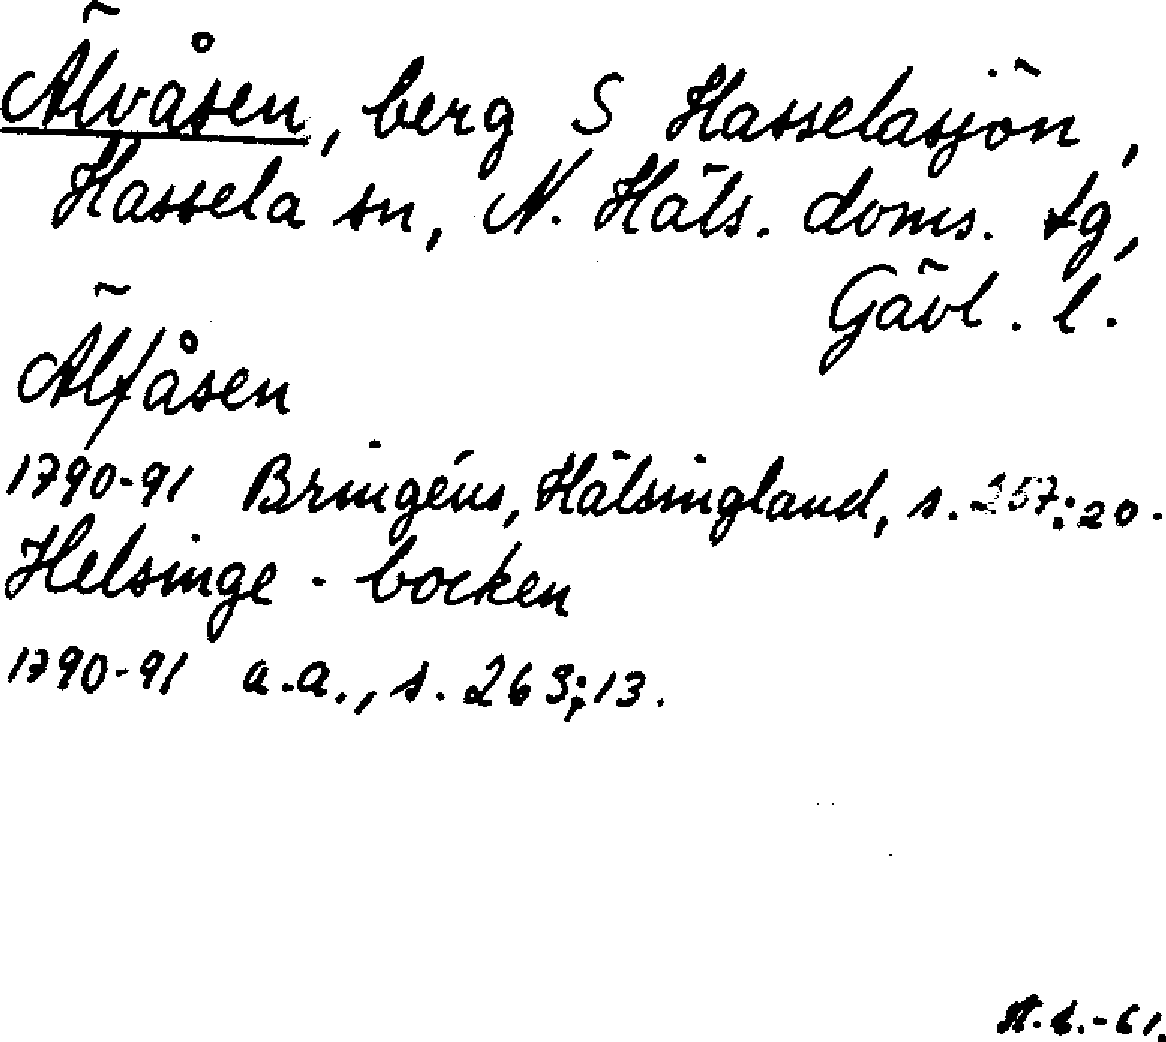 Älvåsen, berg S Hasselasjön,
Hassela sn, N. Häls. doms. tg,
Gävl. l.
Älfåsen
1790-91 Bringéus, Hälsingland, s. 257:20.
Helsinge-bocken
1790-91 a.a., s. 263:13.
-61.